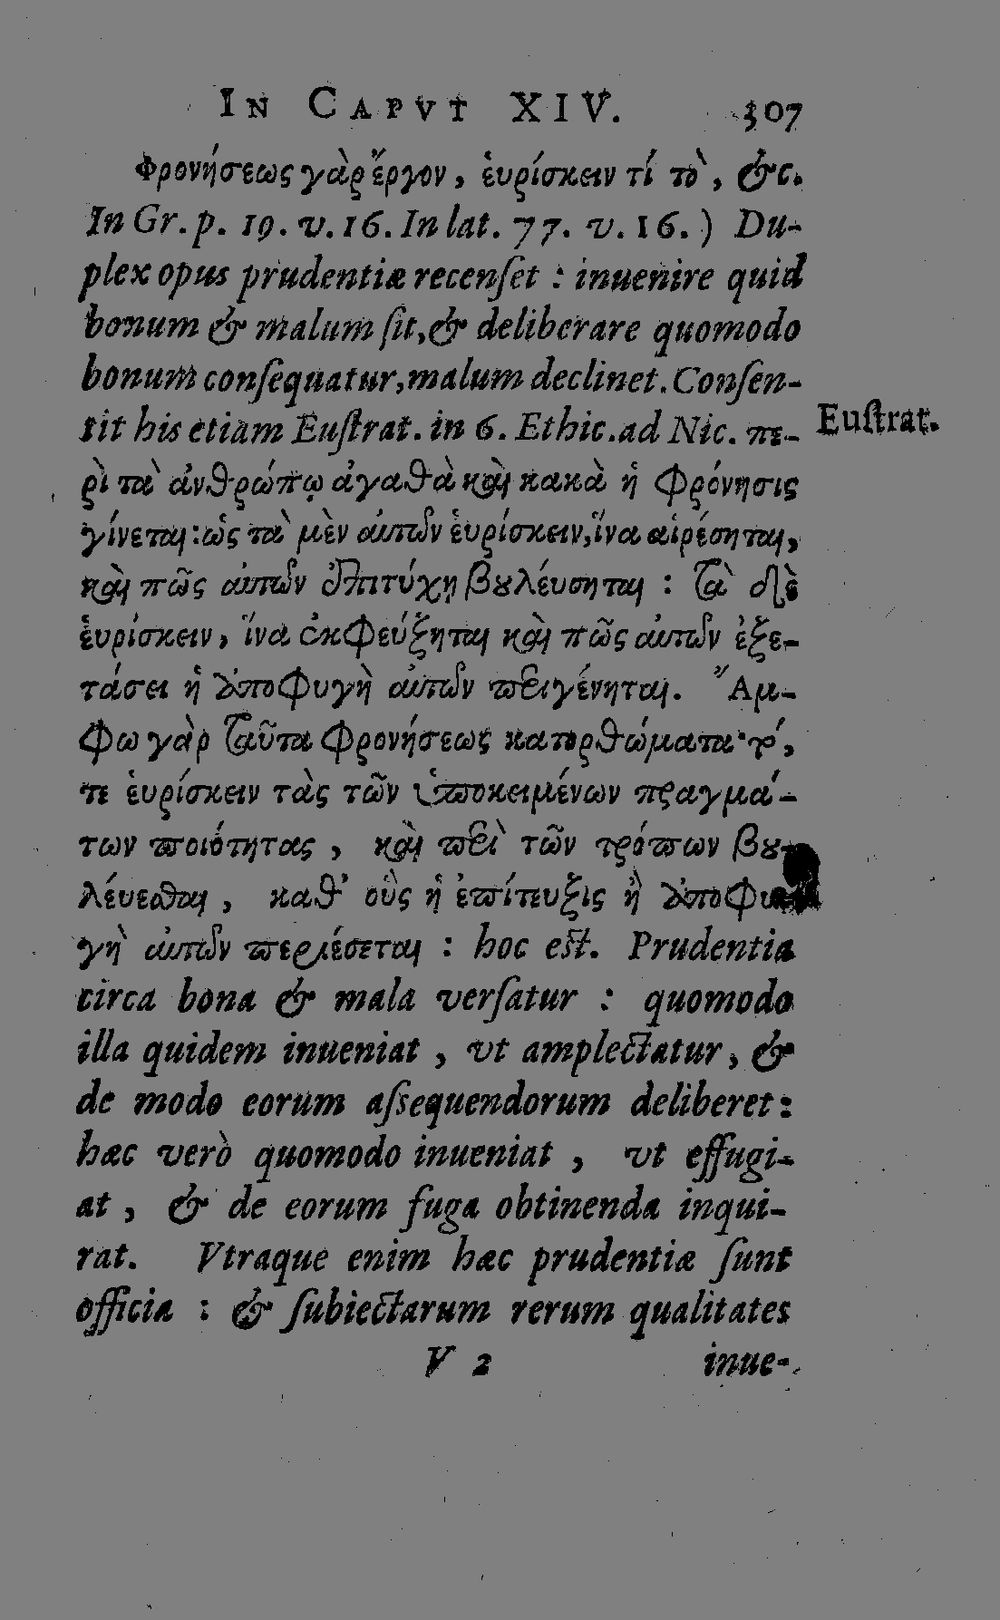 IN CAPVT XIV. 307
Φρονήσεως γὰρ ἔργον, ἑυρίσκειν τί τὸ, &c.
In Gr. p. 19. v. 16. In lat. 77. v. 16.) Du-
plex opus prudentiæ recenſet : inuenire quid
bonum & malum ſit, & deliberare quomodo
bonum conſequatur, malum declinet. Conſen-
tit his etiam Euſtrat. in 6. Ethic. ad Nic. πε-
Euſtrat.
ρὶ τὰ ἀνθρώπῳ ἀγαθὰ καὶ κακὰ ἡ Φρόνησις
γίνεται: ὡς τὰ μὲν ἀυτῶν ἑυρίσκειν, ἵνα αἱρέσηται,
καὶ πῶς ἀυτῶν ἐπιτύχῃ βουλέυσηται : τὰ δὲ
ἑυρίσκειν, ἵνα ἐκΦεύξηται καὶ πῶς ἀυτῶν ἐξε-
τάσει ἡ ἀποΦυγὴ ἀυτῶν περιγένηται. Ἄμ-
Φω γὰρ ταῦτα Φρονήσεως κατορθώματα· τό,
τε ἑυρίσκειν τὰς τῶν ὑποκειμένων πραγμά-
των ποιότητας, καὶ περὶ τῶν τρόπων βου-
λέυεσθαι, καθ’ οὓς ἡ ἐπίτευξις ἢ ἀποΦυ-
γὴ ἀυτῶν περιέσεται : hoc eſt. Prudentia
circa bona & mala verſatur : quomodo
illa quidem inueniat, vt amplectatur, &
de modo eorum aſsequendorum deliberet:
hæc verò quomodo inueniat, vt effugi-
at, & de eorum fuga obtinenda inqui-
rat. Vtraque enim hæc prudentiæ ſunt
officia : & ſubiectarum rerum qualitates
V 2 inue-